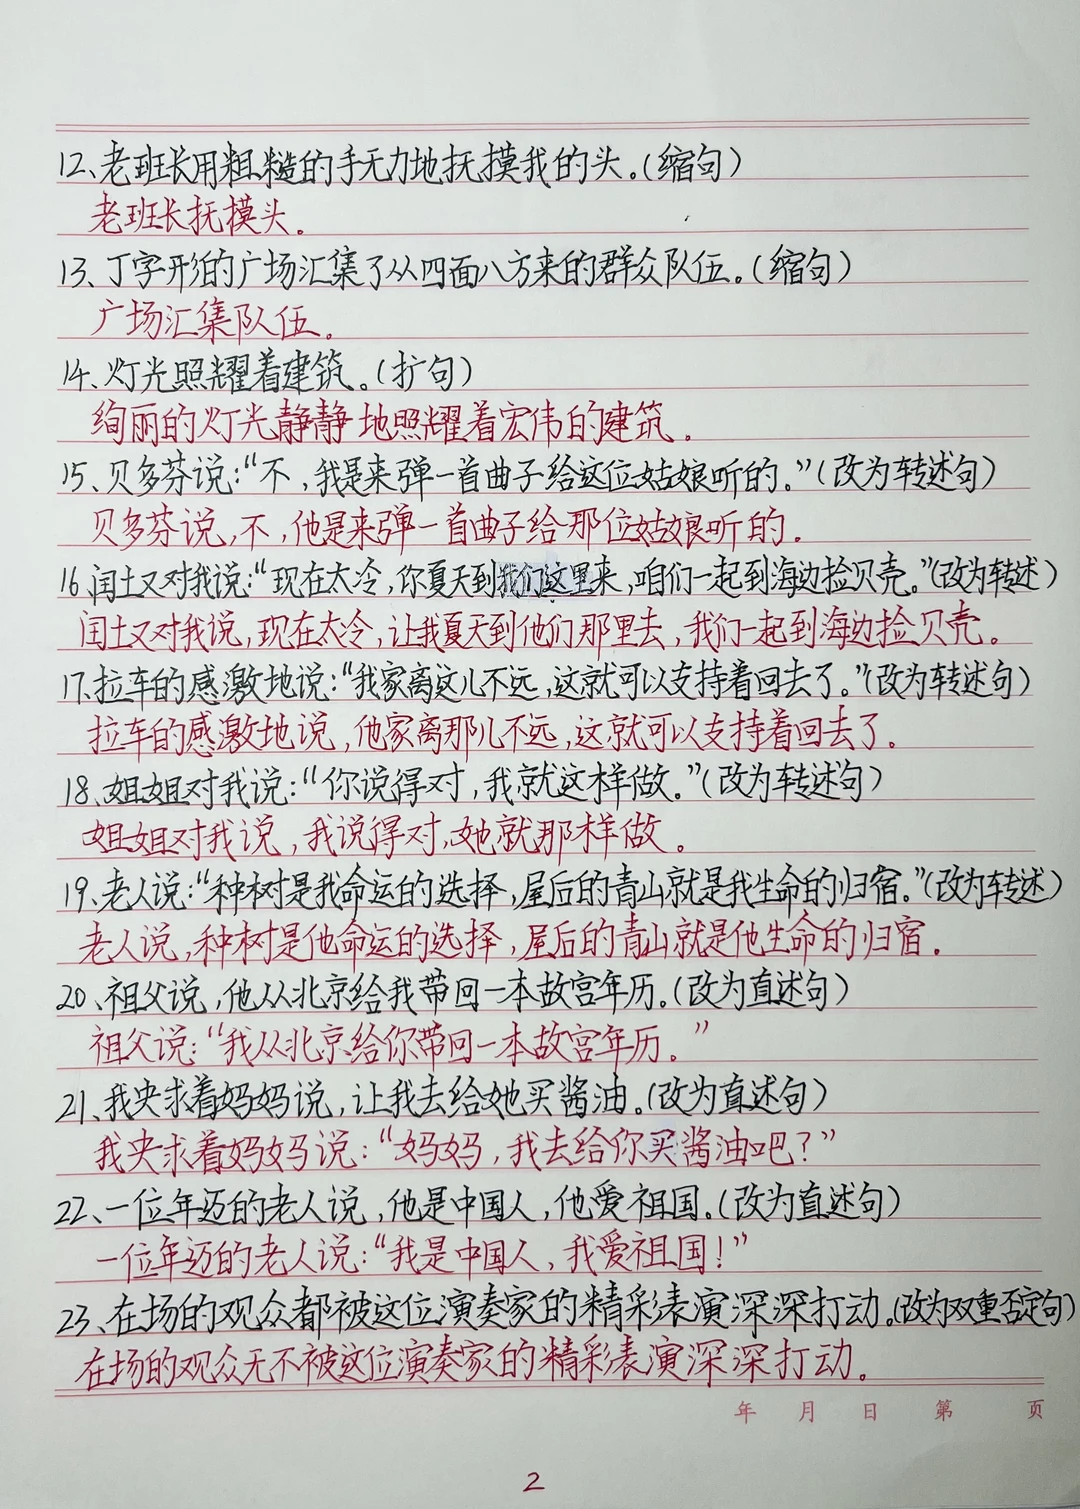 12、老班长用粗糙的手无力地抚摸我的头。(缩句)
老班长抚摸头。
13、丁字形的广场汇集了从四面八方来的群众队伍。(缩句)
广场汇集队伍。
14、灯光照耀着建筑。(扩句)
绚丽的灯光静静地照耀着宏伟的建筑。
15、贝多芬说:“不,我是来弹一首曲子给这位姑娘听的。”(改为转述句)
贝多芬说,不,他是来弹一首曲子给那位姑娘听的.
16、闰土又对我说:“现在太冷,你夏天到我们这里来,咱们一起到海边捡贝壳。”(改为转述)
闰土又对我说,现在太冷,让我夏天到他们那里去,我们一起到海边捡贝壳。
17、拉车的感激地说:“我家离这儿不远,这就可以支持着回去了。”(改为转述句)
拉车的感激地说,他家离那儿不远,这就可以支持着回去了.
18、姐姐对我说:“你说得对,我就这样做。”(改为转述句)
姐姐对我说,我说得对,她就那样做。
19、老人说:“种树是我命运的选择,屋后的青山就是我生命的归宿。”(改为转述)
老人说,种树是他命运的选择,屋后的青山就是他生命的归宿.
20、祖父说,他从北京给我带回一本故宫年历.(改为直述句)
祖父说:“我从北京给你带回一本故宫年历。”
21、我央求着妈妈说,让我去给她买酱油。(改为直述句)
我央求着妈妈说:“妈妈,我去给你买酱油吧?”
22、一位年迈的老人说,他是中国人,他爱祖国。(改为直述句)
一位年迈的老人说:“我是中国人,我爱祖国!”
23、在场的观众都被这位演奏家的精彩表演深深打动.(改为双重否定句)
在场的观众无不被这位演奏家的精彩表演深深打动.
年 月 日 第 页
2